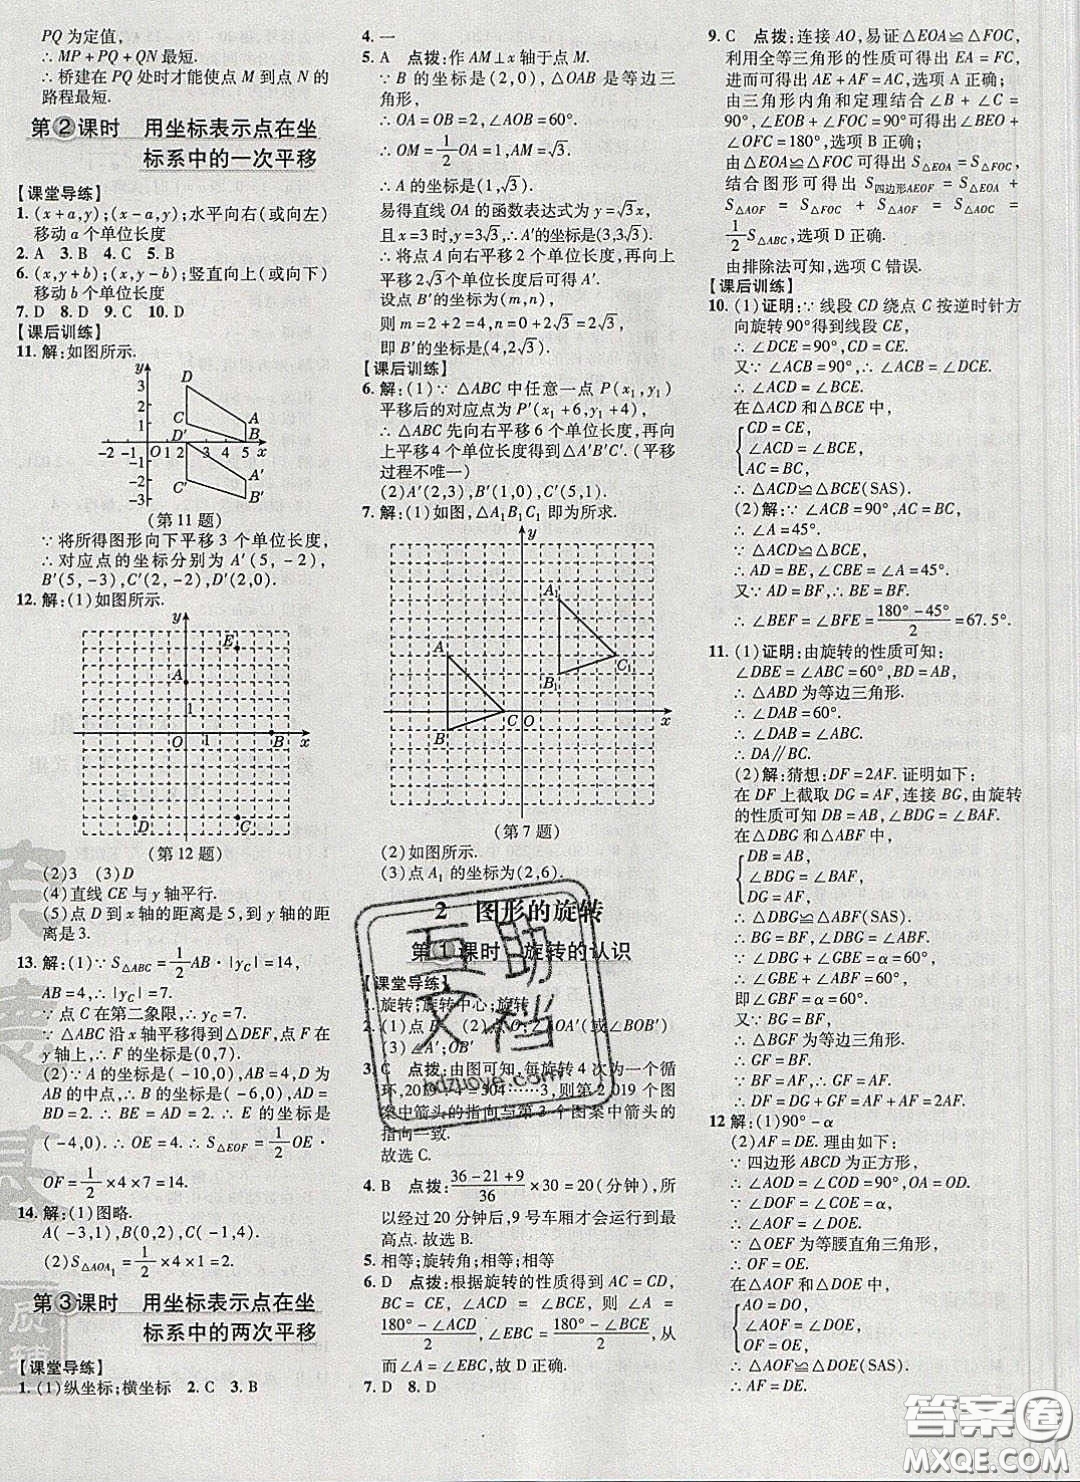 PQ 为定值，
∴ MP + PQ + QN 最短.
∴ 桥建在 PQ 处时才能使点 M 到点 N 的
路程最短.
第②课时 用坐标表示点在坐
标系中的一次平移
【课堂导练】
1. (x+a,y);(x-a,y);水平向右(或向左)
移动 a 个单位长度
2. A 3. B 4. C 5. B
6. (x,y+b);(x,y-b);竖直向上(或向下)
移动 b 个单位长度
7. D 8. D 9. C 10. D
【课后训练】
11. 解:如图所示.
y
3
2
1
-1
-2
-3
-2 -1 O 1 2 3 4 5 x
D
C
A
B
D′
A′
C′
B′
(第 11 题)
∵ 将所得图形向下平移 3 个单位长度，
∴ 对应点的坐标分别为 A′(5, -2),
B′(5, -3),C′(2, -2),D′(2,0).
12. 解:(1)如图所示.
y
E
A
1
O 1 B x
D C
(第 12 题)
(2)3 (3)D
(4)直线 CE 与 y 轴平行.
(5)点 D 到 x 轴的距离是 5,到 y 轴的距
离是 3.
13. 解:(1)∵ S△ABC = 1/2 AB · |yC| = 14,
AB = 4, ∴ |yC| = 7.
∵ 点 C 在第二象限, ∴ yC = 7.
∵ △ABC 沿 x 轴平移得到△DEF,点 F 在
y 轴上, ∴ F 的坐标为(0,7).
(2)∵ A 的坐标是(-10,0),点 D 是
AB 的中点, ∴ B 的坐标是(-6,0),AD =
BD = 2. ∴ D 的坐标是
(-4,0). ∴ OE = 4. ∴ S△EOF = 1/2 OE ·
OF = 1/2 × 4 × 7 = 14.
14. 解:(1)图略.
A(-3,1),B(0,2),C(-1,4).
(2)S△AOA1 = 1/2 × 4 × 1 = 2.
第③课时 用坐标表示点在坐
标系中的两次平移
【课堂导练】
1. (1)纵坐标;横坐标 2. C 3. B
4. 一
5. A 点拨:作 AM⊥x 轴于点 M.
∵ B 的坐标是(2,0),△OAB 是等边三
角形，
∴ OA = OB = 2,∠AOB = 60°.
∴ OM = 1/2 OA = 1,AM = √3.
∴ A 的坐标是(1,√3).
易得直线 OA 的函数表达式为 y = √3x,
且 x = 3 时 y = 3√3, ∴ A′的坐标是(3,3√3).
∴ 将点 A 向右平移 2 个单位长度,再向
上平移 2√3 个单位长度后可得 A′.
设点 B′的坐标为(m,n),
则 m = 2+2 = 4,n = 0+2√3 = 2√3,
即 B′的坐标是(4,2√3).
【课后训练】
6. 解:(1)∵ △ABC 中任意一点 P(x1,y1)
平移后的对应点为 P′(x1+6,y1+4),
∴ △ABC 先向右平移 6 个单位长度,再向
上平移 4 个单位长度得到△A′B′C′.(平移
过程不唯一)
(2)A′(2,3),B′(1,0),C′(5,1).
7. 解:(1)如图,△A1B1C1 即为所求.
y
A1
A
C1
B1
C O x
B
(第 7 题)
(2)如图所示.
(3)点 A1 的坐标为(2,6).
2 图形的旋转
第①课时 旋转的认识
【课堂导练】
1. 旋转;旋转中心;旋转
2. (1)点 B′ (2)点 O;∠AOA′(或∠BOB′)
(3)∠A′;OB′
3. C 点拨:由图可知,每旋转 4 次为一个循
环,2019÷4=504……3,则第 2 019 个图
案中箭头的指向与第 3 个图案中箭头的
指向一致.
故选 C.
4. B 点拨: (36-21+9)/36 × 30 = 20(分钟),所
以经过 20 分钟后,9 号车厢才会运行到最
高点. 故选 B.
5. 相等;旋转角;相等;相等
6. D 点拨:根据旋转的性质得到 AC = CD,
BC = CE,∠ACD = ∠BCE, ∴ ∠A =
(180°-∠ACD)/2,∠EBC = (180°-∠BCE)/2,从
而∠A = ∠EBC,故 D 正确.
7. D 8. D
9. C 点拨:连接 AO,易证△EOA≌△FOC,
利用全等三角形的性质可得出 EA = FC,
进而可得出 AE + AF = AC,选项 A 正确;
由三角形内角和定理结合∠B + ∠C =
90°,∠EOB + ∠FOC = 90°可得出∠BEO +
∠OFC = 180°,选项 B 正确;
由△EOA≌△FOC 可得出 S△EOA = S△FOC,
结合图形可得出 S四边形AEOF = S△EOA +
S△AOF = S△FOC + S△AOF = S△AOC =
1/2 S△ABC,选项 D 正确.
由排除法可知,选项 C 错误.
【课后训练】
10. (1)证明:∵ 线段 CD 绕点 C 按逆时针方
向旋转 90°得到线段 CE,
∴ ∠DCE = 90°,CD = CE.
又∵ ∠ACB = 90°, ∴ ∠ACB = ∠DCE.
∴ ∠ACD = ∠BCE.
在△ACD 和△BCE 中，
{CD = CE,
∠ACD = ∠BCE,
AC = BC,
∴ △ACD≌△BCE(SAS).
(2)解:∵ ∠ACB = 90°,AC = BC,
∴ ∠A = 45°.
∵ △ACD≌△BCE,
∴ AD = BE,∠CBE = ∠A = 45°.
又∵ AD = BF, ∴ BE = BF.
∴ ∠BEF = ∠BFE = (180°-45°)/2 = 67.5°.
11. (1)证明:由旋转的性质可知:
∠DBE = ∠ABC = 60°,BD = AB.
∴ △ABD 为等边三角形.
∴ ∠DAB = 60°.
∴ ∠DAB = ∠ABC.
∴ DA∥BC.
(2)解:猜想:DF = 2AF. 证明如下:
在 DF 上截取 DG = AF,连接 BG,由旋转
的性质可知 DB = AB,∠BDG = ∠BAF.
在△DBG 和△ABF 中，
{DB = AB,
∠BDG = ∠BAF,
DG = AF,
∴ △DBG≌△ABF(SAS).
∴ BG = BF,∠DBG = ∠ABF.
∵ ∠DBG + ∠GBE = α = 60°,
∴ ∠GBE + ∠ABF = 60°,
即∠GBF = α = 60°.
∴ △BGF 为等边三角形.
∴ GF = BF.
∵ BF = AF,
∴ GF = AF.
∴ DF = DG + GF = AF + AF = 2AF.
12 解:(1)90° - α
(2)AF = DE. 理由如下:
∵ 四边形 ABCD 为正方形，
∴ ∠AOD = ∠COD = 90°,OA = OD.
∵ ∠DOF = ∠COE = α,
∴ ∠AOF = ∠DOE.
∵ △OEF 为等腰直角三角形，
∴ OF = OE.
在△AOF 和△DOE 中，
{AO = DO,
∠AOF = ∠DOE,
OF = OE,
∴ △AOF≌△DOE(SAS).
∴ AF = DE.
互助文档
bdzuoye.com
答案圈
MXQE.COM
质辅